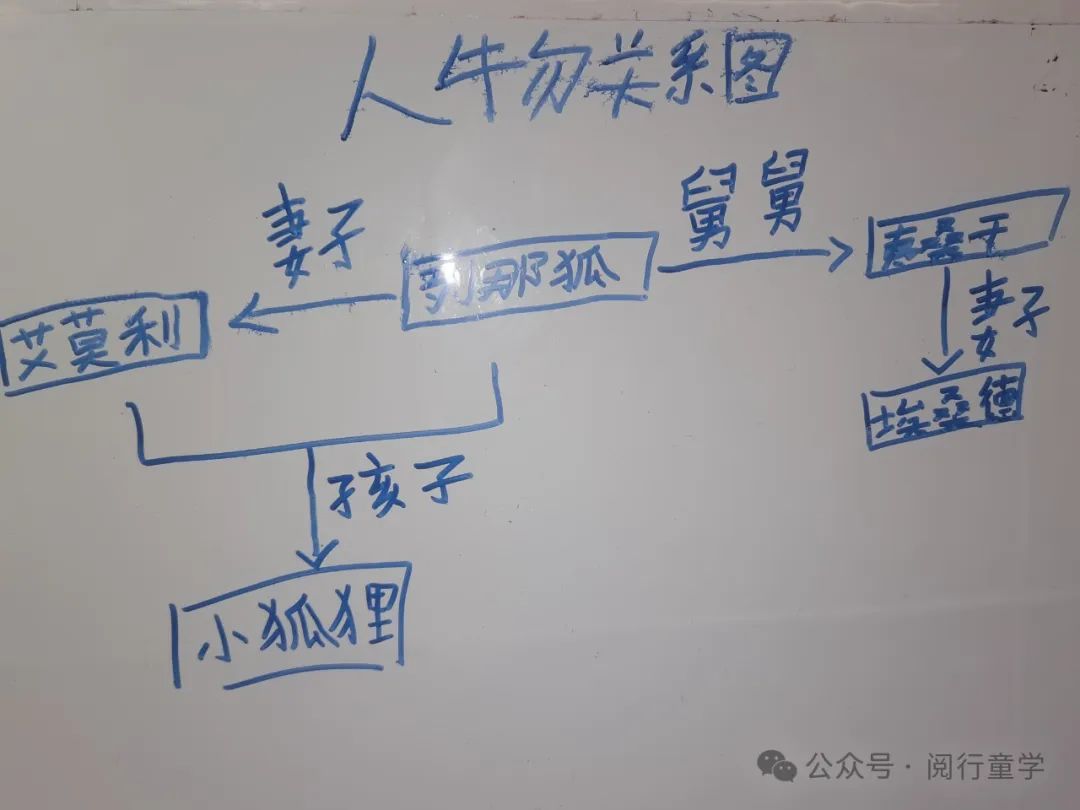 人物关系图
舅舅
妻子
列那狐
夷桑干
妻子
艾莫利
埃桑德
孩子
小狐狸
公众号·阅行童学